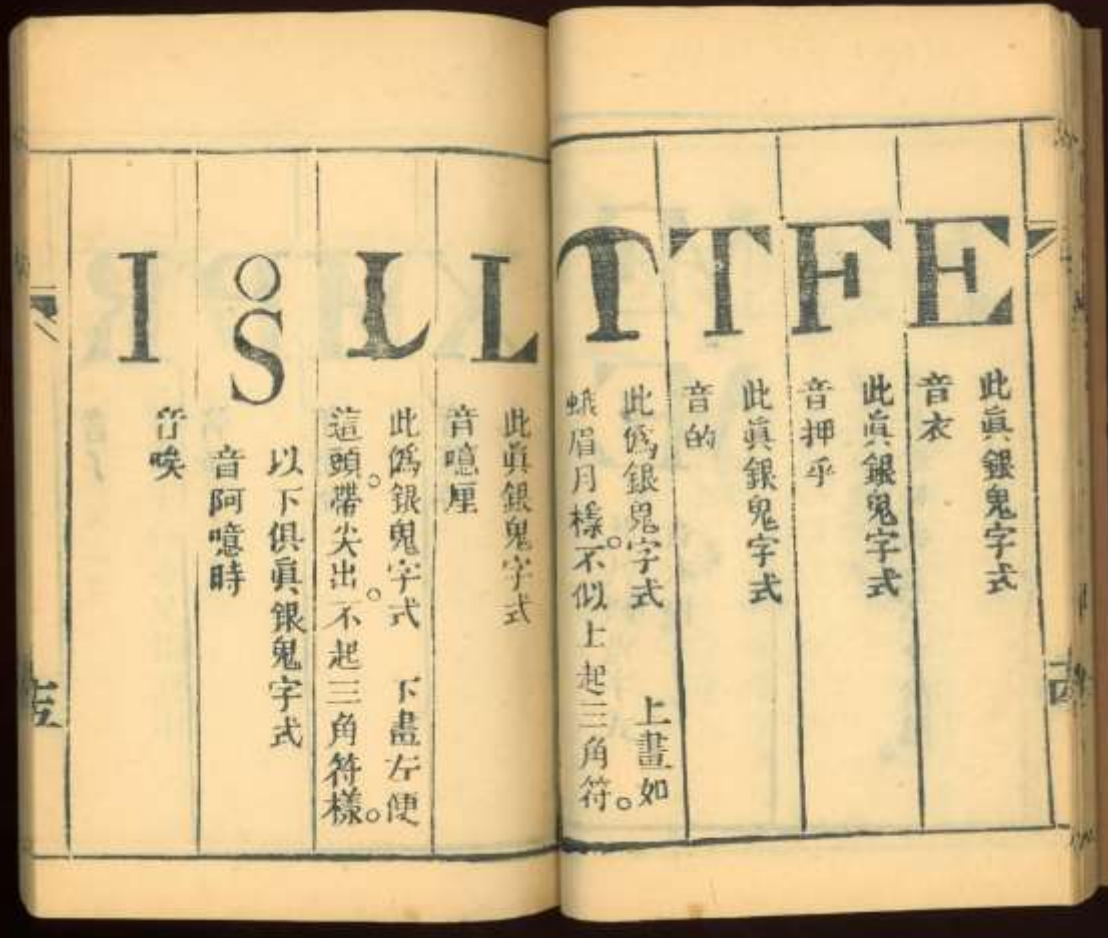 E
此眞銀鬼字式
音衣
F
此眞銀鬼字式
音押乎
T
此眞銀鬼字式
音的
T
此僞銀鬼字式 上畫如
蛾眉月樣。不似上起三角符。
L
此眞銀鬼字式
音噫厘
L
此僞銀鬼字式 下畫左便
這頭帶尖出。不起三角符樣。
S
以下俱眞銀鬼字式
音阿噫時
I
音唉